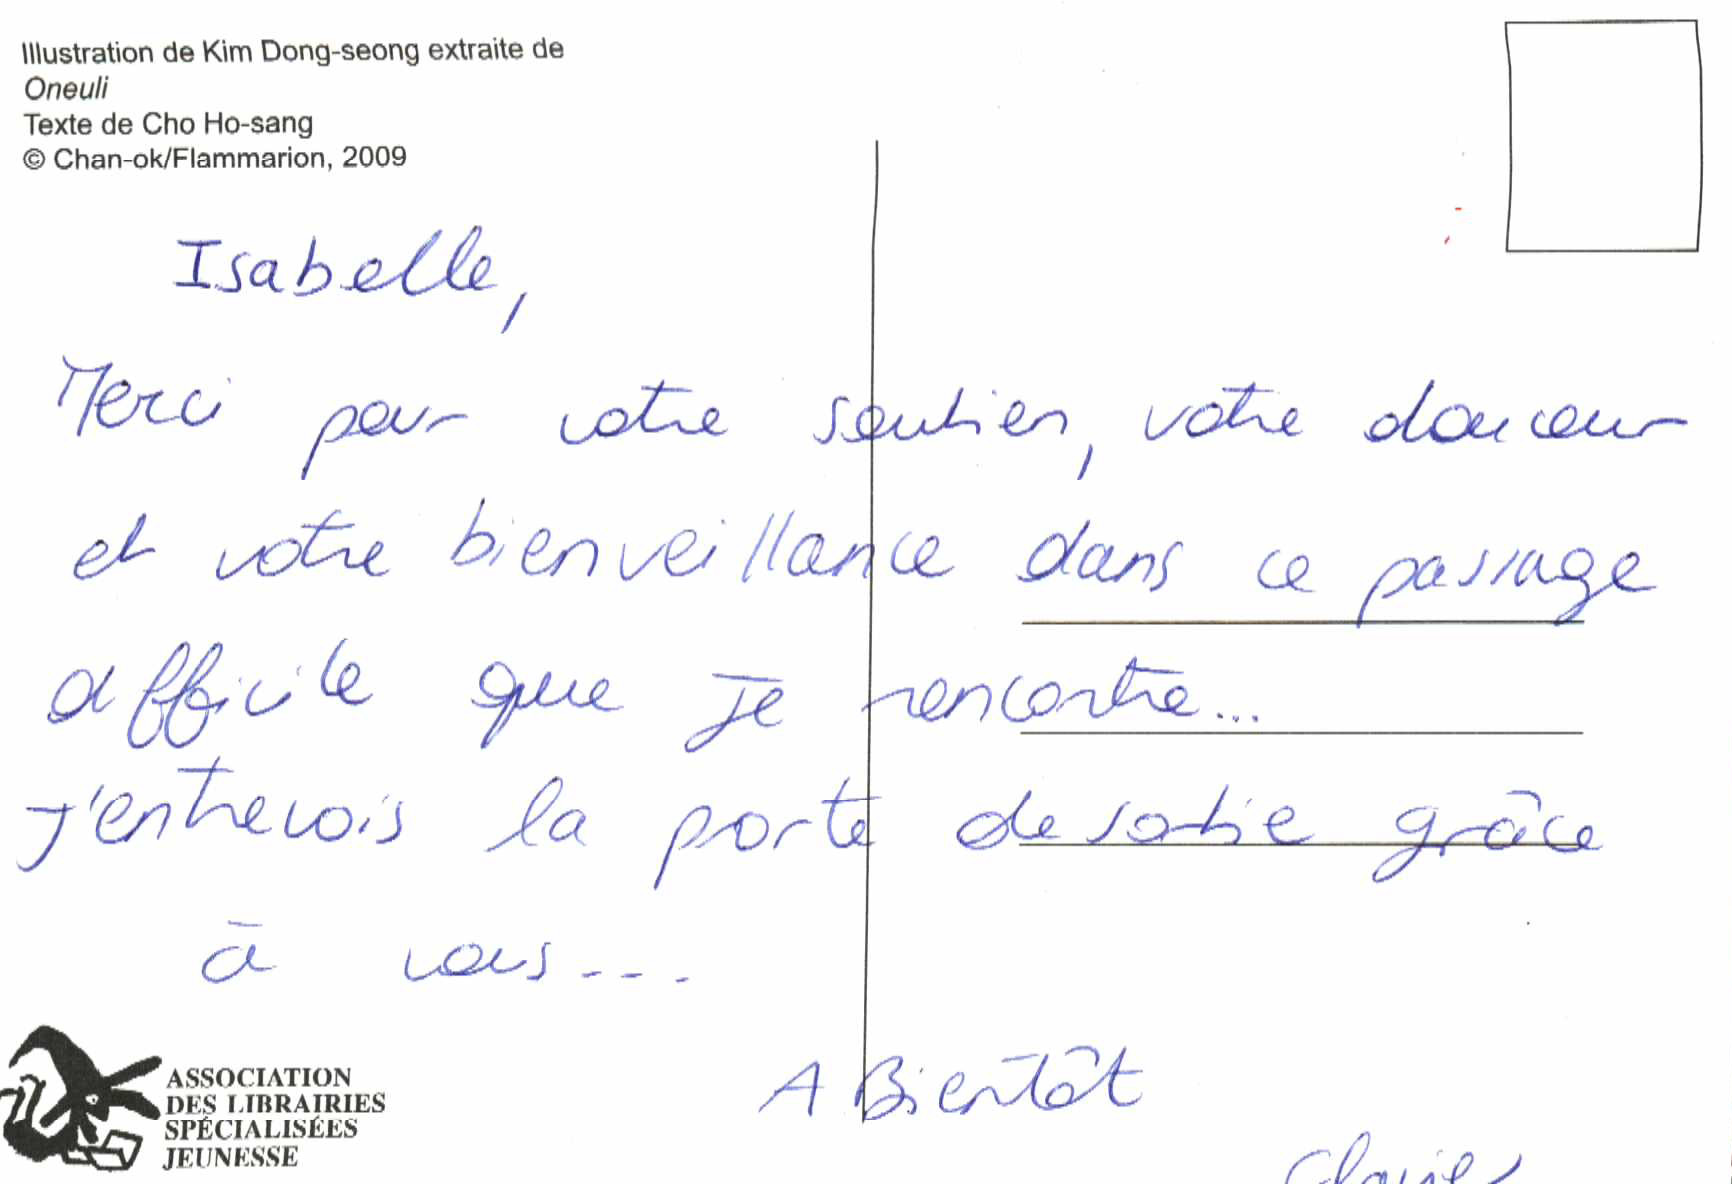 Illustration de Kim Dong-seong extraite de
Oneuli
Texte de Cho Ho-sang
© Chan-ok/Flammarion, 2009
Isabelle,
Merci pour votre soutien, votre douceur
et votre bienveillance dans ce passage
difficile que je rencontre...
J'entrevois la porte de sortie grâce
à vous....
A Bientôt
ASSOCIATION
DES LIBRAIRIES
SPÉCIALISÉES
JEUNESSE